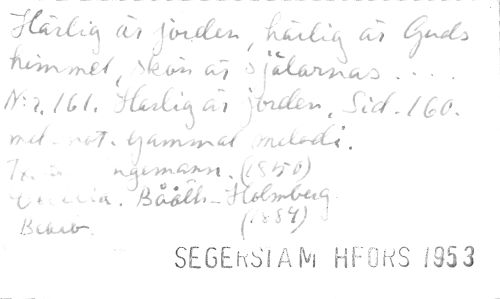 Härlig är jorden, härlig är Guds
himmel, skön är själarnas . . . .
N:r. 161. Härlig är jorden, Sid. 160.
mel. not. Gammal melodi.
ngemann. (1850)
Cecilia. Bååth-Holmberg
(1884)
SEGERSTAM HFORS 1953